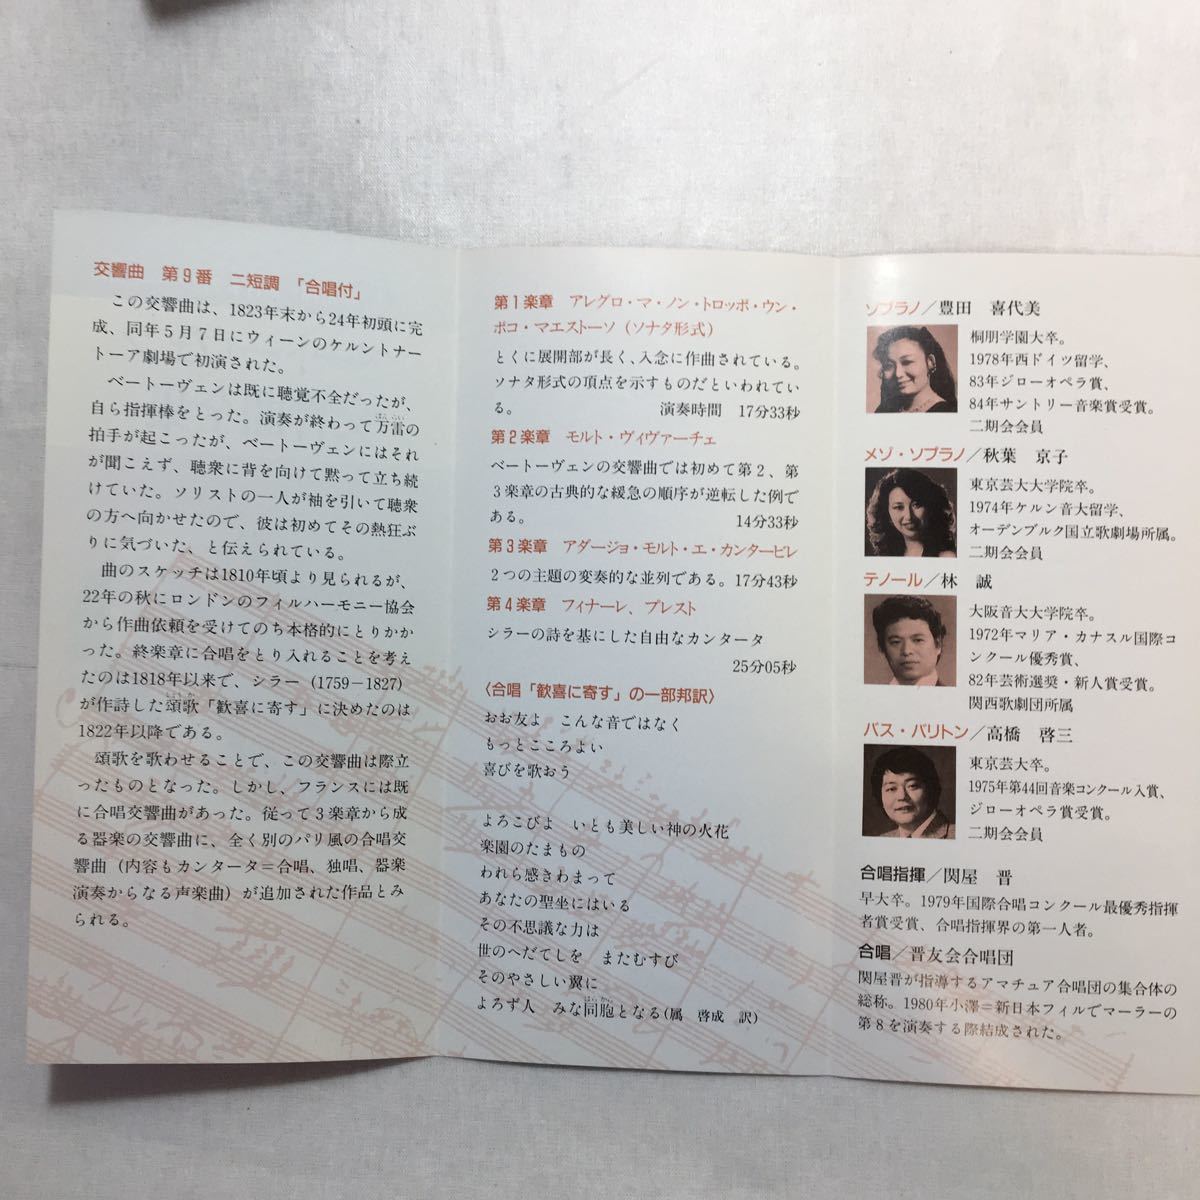 交響曲　第9番　ニ短調　「合唱付」
この交響曲は、1823年末から24年初頭に完
成、同年5月7日にウィーンのケルントナー
トーア劇場で初演された。
ベートーヴェンは既に聴覚不全だったが、
自ら指揮棒をとった。演奏が終わって万雷の
拍手が起こったが、ベートーヴェンにはそれ
が聞こえず、聴衆に背を向けて黙って立ち続
けていた。ソリストの一人が袖を引いて聴衆
の方へ向かせたので、彼は初めてその熱狂ぶ
りに気づいた、と伝えられている。
曲のスケッチは1810年頃より見られるが、
22年の秋にロンドンのフィルハーモニー協会
から作曲依頼を受けてのち本格的にとりかか
った。終楽章に合唱をとり入れることを考え
たのは1818年以来で、シラー（1759－1827）
が作詩した頌歌「歓喜に寄す」に決めたのは
1822年以降である。
頌歌を歌わせることで、この交響曲は際立
ったものとなった。しかし、フランスには既
に合唱交響曲があった。従って3楽章から成
る器楽の交響曲に、全く別のパリ風の合唱交
響曲（内容もカンタータ＝合唱、独唱、器楽
演奏からなる声楽曲）が追加された作品とみ
られる。
第1楽章　アレグロ・マ・ノン・トロッポ・ウン・
ポコ・マエストーソ（ソナタ形式）
とくに展開部が長く、入念に作曲されている。
ソナタ形式の頂点を示すものだといわれてい
る。　演奏時間　17分33秒
第2楽章　モルト・ヴィヴァーチェ
ベートーヴェンの交響曲では初めて第2、第
3楽章の古典的な緩急の順序が逆転した例で
ある。　14分33秒
第3楽章　アダージョ・モルト・エ・カンタービレ
2つの主題の変奏的な並列である。17分43秒
第4楽章　フィナーレ、プレスト
シラーの詩を基にした自由なカンタータ
25分05秒
〈合唱「歓喜に寄す」の一部邦訳〉
おお友よ　こんな音ではなく
もっとこころよい
喜びを歌おう
よろこびよ　いとも美しい神の火花
楽園のたまもの
われら感きわまって
あなたの聖坐にはいる
その不思議な力は
世のへだてしを　またむすび
そのやさしい翼に
よろず人　みな同胞となる（属　啓成　訳）
ソプラノ／豊田　喜代美
桐朋学園大卒。
1978年西ドイツ留学、
83年ジローオペラ賞、
84年サントリー音楽賞受賞。
二期会会員
メゾ・ソプラノ／秋葉　京子
東京芸大大学院卒。
1974年ケルン音大留学、
オーデンブルク国立歌劇場所属。
二期会会員
テノール／林　誠
大阪音大大学院卒。
1972年マリア・カナスル国際コ
ンクール優秀賞、
82年芸術選奨・新人賞受賞。
関西歌劇団所属
バス・バリトン／高橋　啓三
東京芸大卒。
1975年第44回音楽コンクール入賞、
ジローオペラ賞受賞。
二期会会員
合唱指揮／関屋　晋
早大卒。1979年国際合唱コンクール最優秀指揮
者賞受賞、合唱指揮界の第一人者。
合唱／晋友会合唱団
関屋晋が指導するアマチュア合唱団の集合体の
総称。1980年小澤＝新日本フィルでマーラーの
第8を演奏する際結成された。